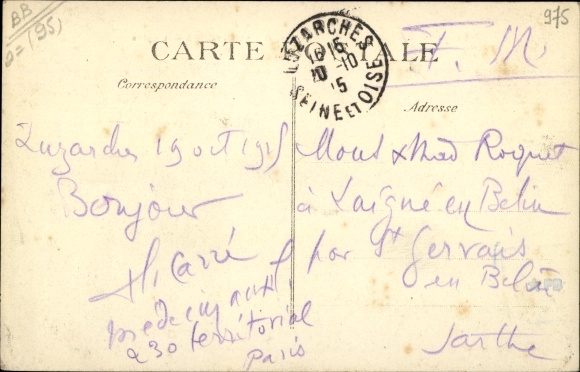 BB
(95)
975
CARTE POSTALE
F. M
LUZARCHES
16 15
20 -10
15
SEINE ET OISE
Correspondance
Adresse
Luzarches 19 oct 1915
Bonjour
H. Carré
médecin auxil
230 territorial
Paris
Mons & Mad Roquet
à Laigné en Belin
par St Gervais
en Belin
Sarthe